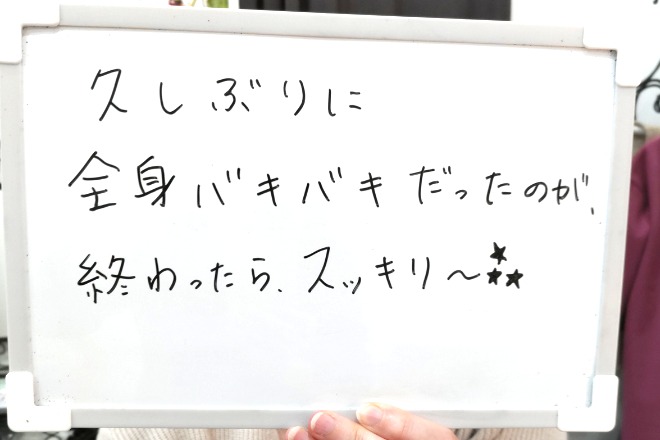 久しぶりに
全身バキバキだったのが、
終わったら、スッキリ～★★★